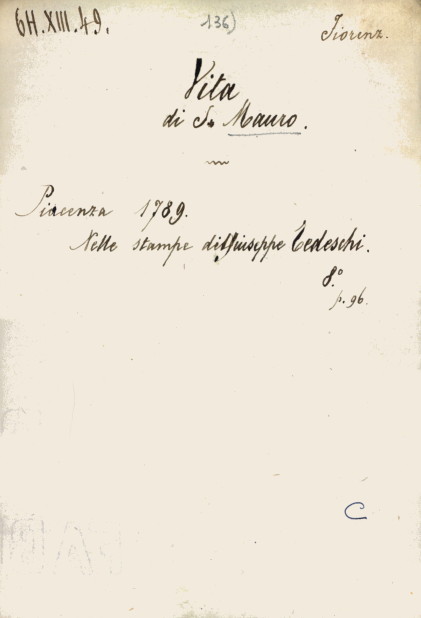 6H.XIII.49. 136) Fiorenz.
Vita
di S. Mauro.
Piacenza 1789.
Nelle stampe di Giuseppe Tedeschi.
8.º
p. 96.
C